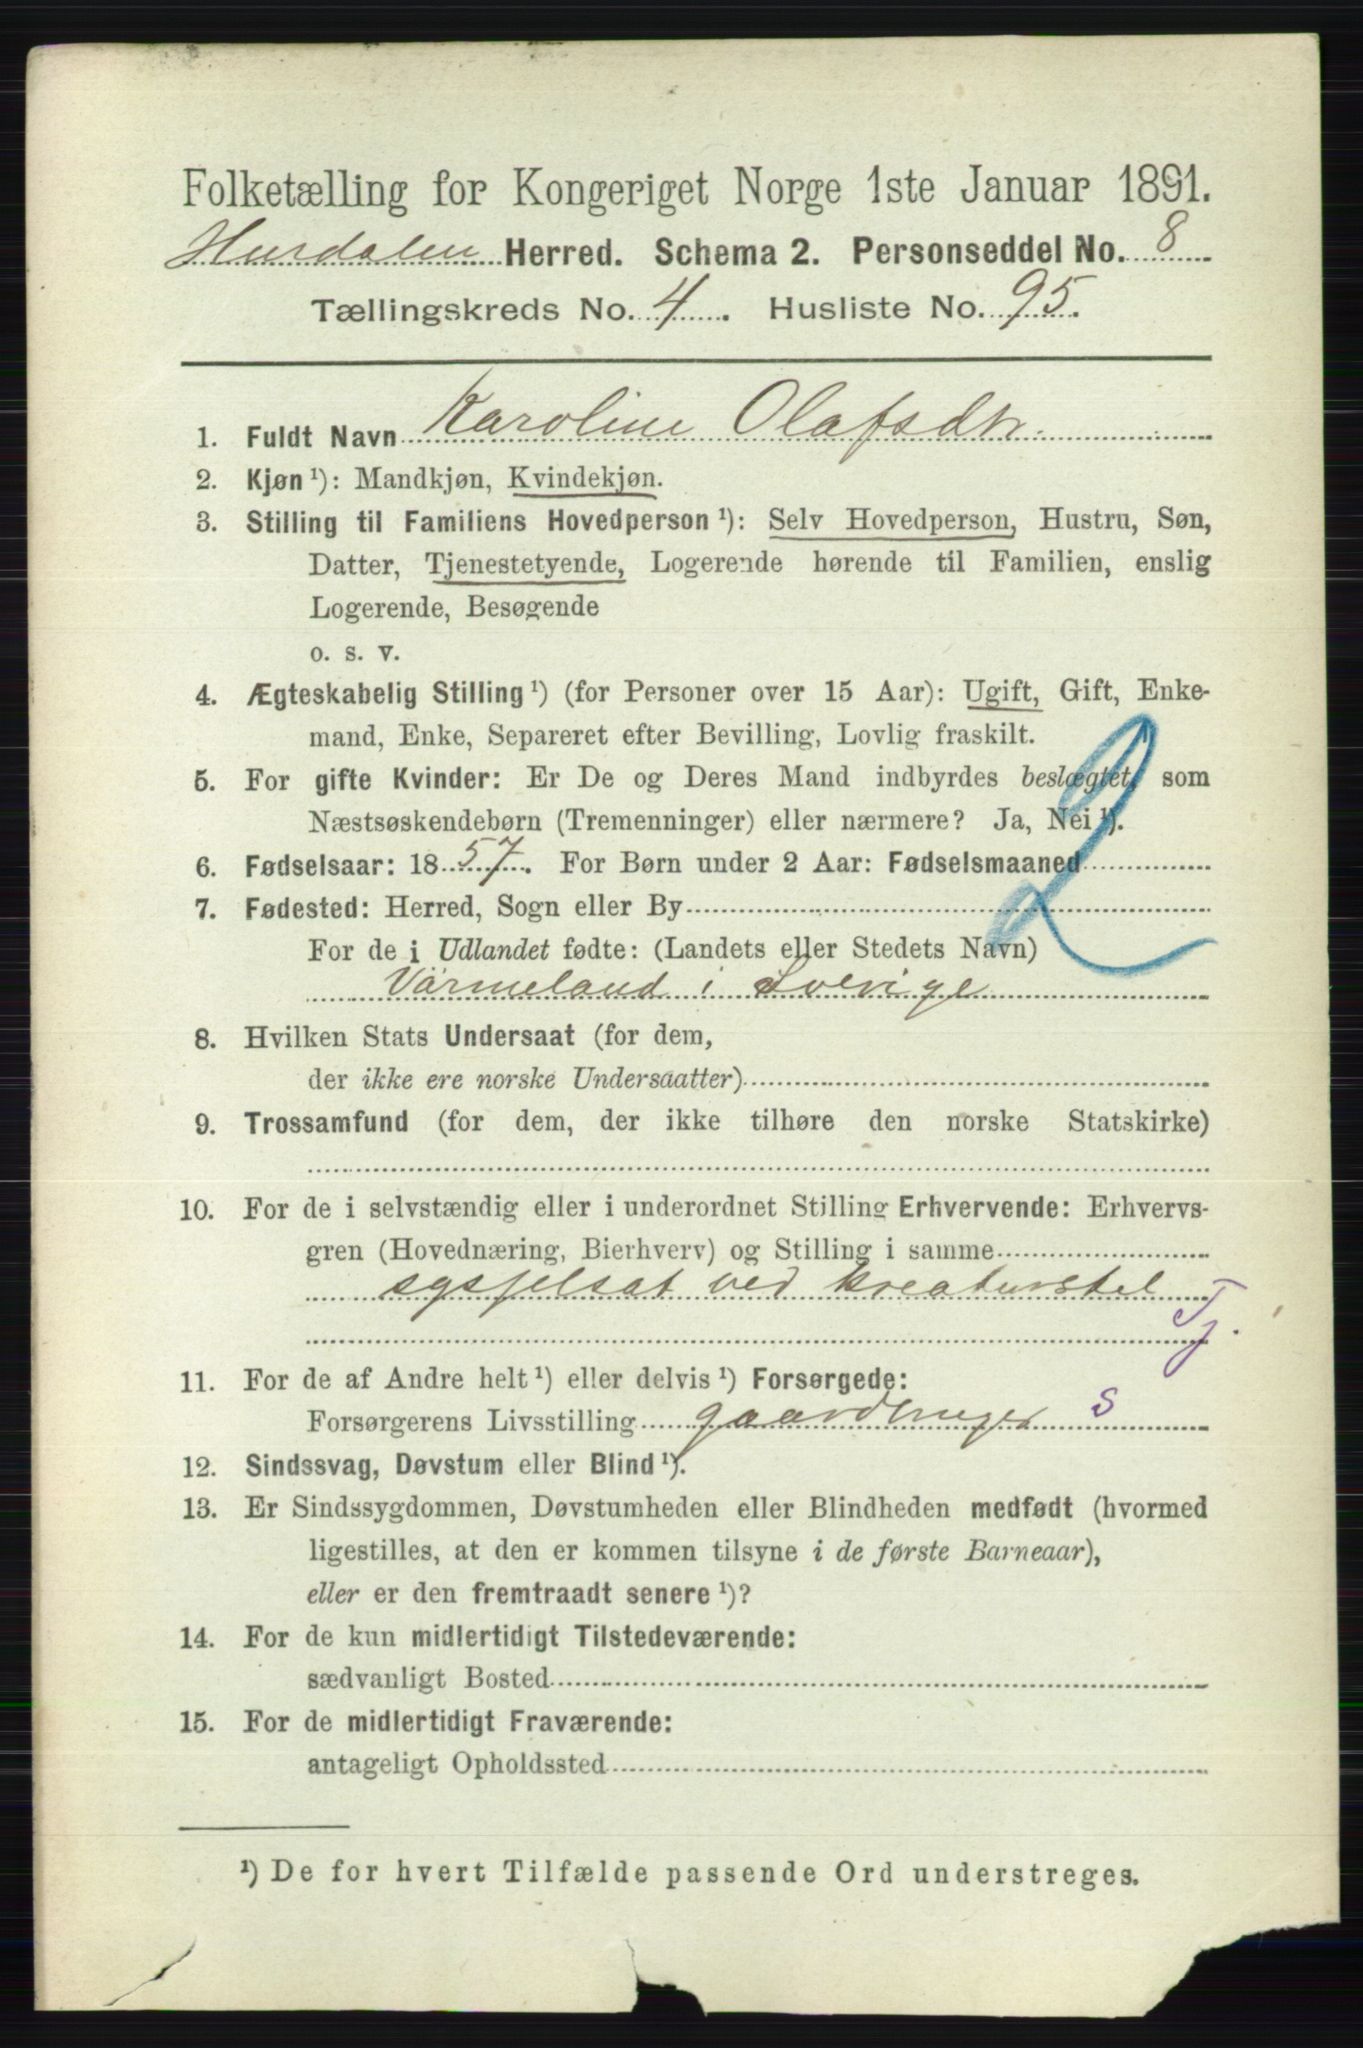 Folketælling for Kongeriget Norge 1ste Januar 1891.
Hurdalen Herred. Schema 2. Personseddel No. 8
Tællingskreds No. 4. Husliste No. 95.
1. Fuldt Navn Karoline Olafsdtr.
2. Kjøn ¹): Mandkjøn, Kvindekjøn.
3. Stilling til Familiens Hovedperson ¹): Selv Hovedperson, Hustru, Søn,
Datter, Tjenestetyende, Logerende hørende til Familien, enslig
Logerende, Besøgende
o. s. v.
4. Ægteskabelig Stilling ¹) (for Personer over 15 Aar): Ugift, Gift, Enke-
mand, Enke, Separeret efter Bevilling, Lovlig fraskilt.
5. For gifte Kvinder: Er De og Deres Mand indbyrdes beslægtet, som
Næstsøskendebørn (Tremenninger) eller nærmere? Ja, Nei ¹).
6. Fødselsaar: 1857. For Børn under 2 Aar: Fødselsmaaned
7. Fødested: Herred, Sogn eller By
For de i Udlandet fødte: (Landets eller Stedets Navn)
Värmeland i Sverige
2
8. Hvilken Stats Undersaat (for dem,
der ikke ere norske Undersaatter)
9. Trossamfund (for dem, der ikke tilhøre den norske Statskirke)
10. For de i selvstændig eller i underordnet Stilling Erhvervende: Erhvervs-
gren (Hovednæring, Bierhverv) og Stilling i samme
sysjelsat ved kreaturstel
Tj.
11. For de af Andre helt ¹) eller delvis ¹) Forsørgede:
Forsørgerens Livsstilling gaardbruger S
12. Sindssvag, Døvstum eller Blind ¹).
13. Er Sindssygdommen, Døvstumheden eller Blindheden medfødt (hvormed
ligestilles, at den er kommen tilsyne i de første Barneaar),
eller er den fremtraadt senere ¹)?
14. For de kun midlertidigt Tilstedeværende:
sædvanligt Bosted
15. For de midlertidigt Fraværende:
antageligt Opholdssted
¹) De for hvert Tilfælde passende Ord understreges.